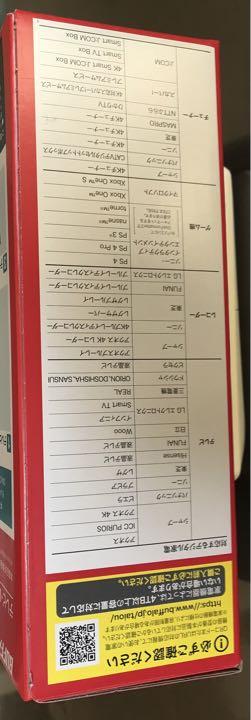 必ずご確認ください
https://www.buffalo.jp/taiou/
家電機器によっては、4TB以上の容量に対応して
いない場合があります。
ご購入前に必ずご確認ください。
対応するデジタル家電
テレビ
シャープ
アクオス
ICC PURIOS
アクオス 4K
パナソニック
ビエラ
ソニー
ブラビア
東芝
レグザ
Hisense
液晶テレビ
FUNAI
液晶テレビ
日立
Wooo
LG エレクトロニクス
インフィニア
Smart TV
三菱電機
REAL
ドウシシャ
ORION,DOSHISHA,SANSUI
ピクセラ
液晶テレビ
レコーダー
シャープ
アクオスブルーレイ
アクオス 4K レコーダー
ソニー
ブルーレイディスクレコーダー
東芝
レグザサーバー
レグザブルーレイ
FUNAI
ブルーレイディスクレコーダー
LG エレクトロニクス
ブルーレイディスクレコーダー
ゲーム機
ソニー・
インタラクティブ
エンタテインメント
PS 4
PS 4 Pro
PS 3
nasne™
torne™
マイクロソフト
Xbox One™
Xbox One™ S
チューナー
シャープ
4Kチューナー
パナソニック
CATVデジタルセットトップボックス
ソニー
4Kチューナー
東芝
4Kチューナー
MASPRO
4Kチューナー
NTTぷらら
ひかりTV
スカパー!
4K対応スカパー!プレミアムサービス
プレミアムサービス
J:COM
4K Smart J:COM Box
Smart TV Box
Smart J:COM Box